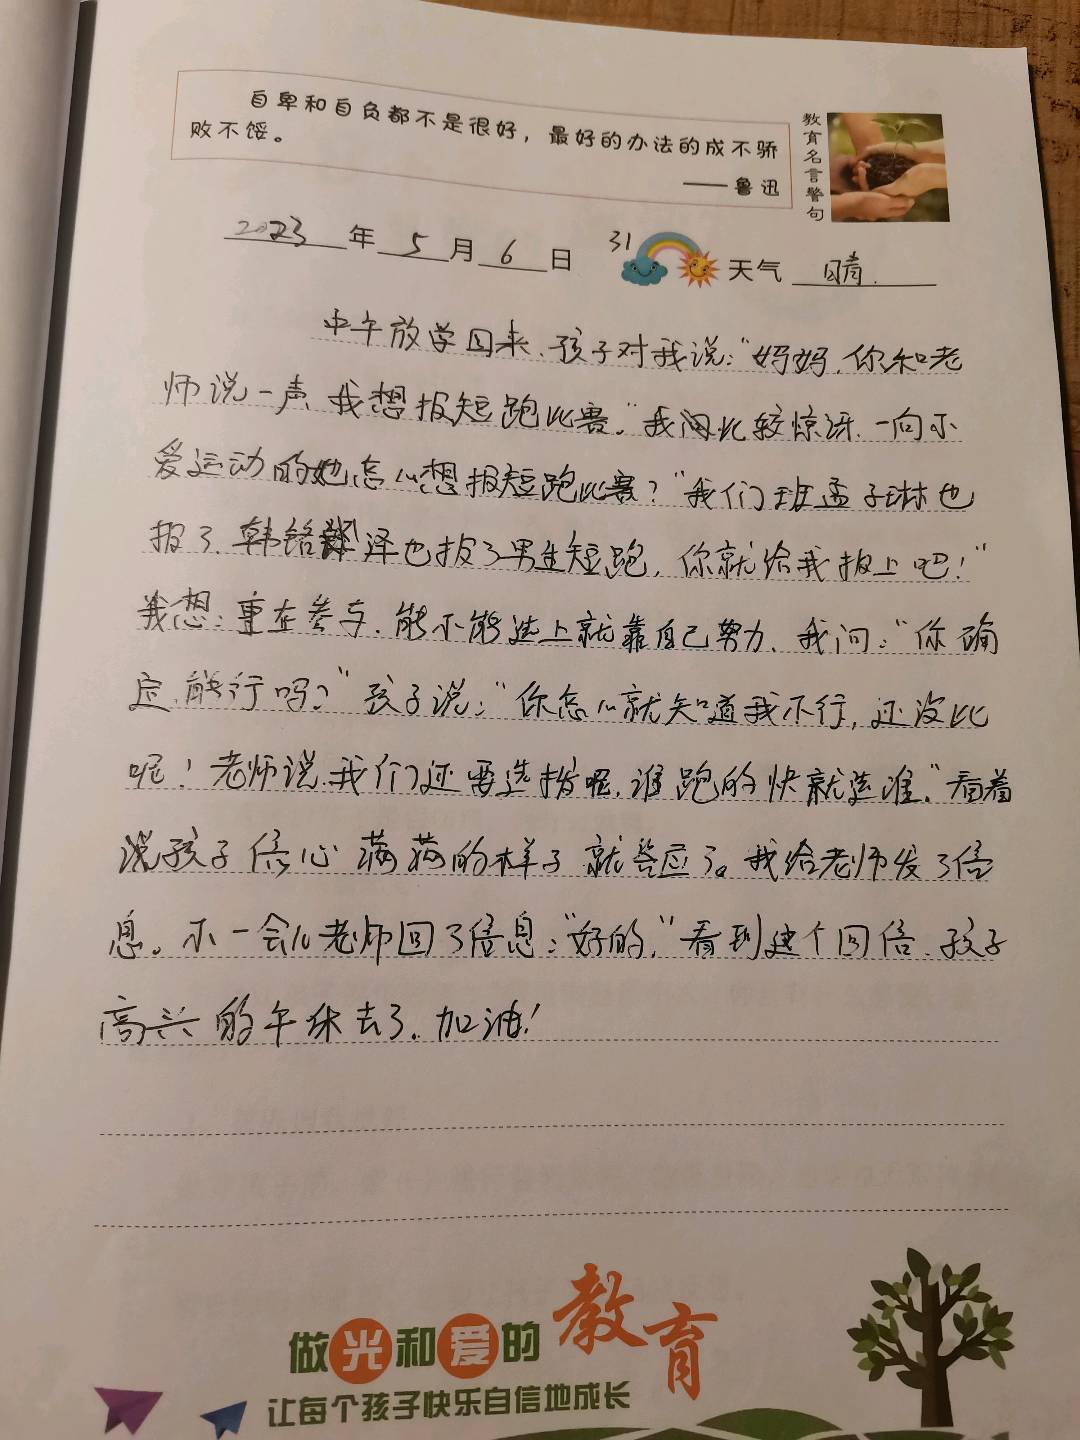 自卑和自负都不是很好，最好的办法的成不骄
败不馁。
——鲁迅
教育名言警句
2023年5月6日 31 天气 晴.
中午放学回来、孩子对我说："妈妈.你和老
师说一声、我想报短跑比赛。"我闻比较惊讶.一向不
爱运动的她怎么想报短跑比赛？"我们班孟子琳也
报了.韩铭泽也报了男生短跑，你就给我报上吧！"
我想：重在参与.能不能选上就靠自己努力、我问："你确
定.能行吗？"孩子说："你怎么就知道我不行，还没比
呢！老师说.我们还要选拔呢.谁跑的快就选谁."看着
说孩子信心满满的样子就答应了。我给老师发了信
息。不一会儿老师回了信息："好的，"看到这个回信.孩子
高兴的午休去了.加油！
做光和爱的教育
让每个孩子快乐自信地成长